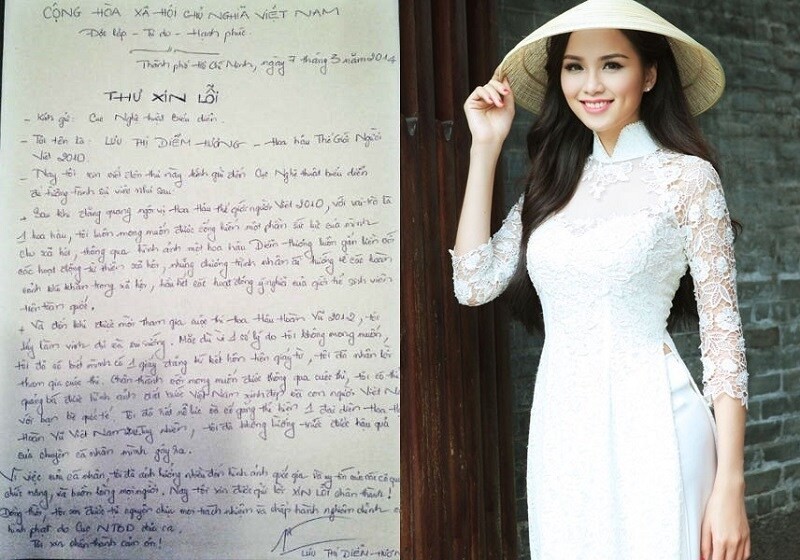 CỘNG HÒA XÃ HỘI CHỦ NGHĨA VIỆT NAM
Độc lập - Tự do - Hạnh phúc.
Thành phố Hồ Chí Minh, ngày 7 tháng 3 năm 2014
THƯ XIN LỖI
- Kính gửi: Cục Nghệ thuật biểu diễn.
- Tôi tên là: LƯU THỊ DIỄM HƯƠNG - Hoa hậu Thế Giới Người
Việt 2010.
- Nay tôi xin viết đơn thư này kính gửi đến Cục Nghệ thuật biểu diễn
để tường trình sự việc như sau:
+ Sau khi đăng quang ngôi vị Hoa Hậu thế giới người Việt 2010, với vai trò là
1 hoa hậu, tôi luôn mong muốn được cống hiến một phần sức bé của mình
cho xã hội, thông qua hình ảnh một hoa hậu Diễm Hương luôn gắn liền với
các hoạt động từ thiện xã hội, những chương trình nhân ái hướng về các hoàn
cảnh khó khăn trong xã hội, hầu hết các hoạt động ý nghĩa của giới trẻ sinh viên
trên toàn quốc.
+ Và đến khi được mời tham gia cuộc thi Hoa Hậu Hoàn Vũ 2012, tôi
lấy làm vinh dự và vui sướng. Mặc dù vì 1 số lý do tôi không mong muốn,
tôi đã có biết mình có 1 giấy đăng ký kết hôn trên giấy tờ, tôi đã nhận lời
tham gia cuộc thi. Chân thành với mong muốn được thông qua cuộc thi, tôi có thể
quảng bá được hình ảnh đất nước Việt Nam xinh đẹp và con người Việt Nam
với bạn bè quốc tế. Tôi đã hết nỗ lực và cố gắng thể hiện 1 đại diện Hoa Hậu
Hoàn Vũ Việt Nam. Tuy nhiên, tôi đã không lường trước được hậu quả
của chuyện cá nhân mình gây ra.
Vì việc của cá nhân, tôi đã ảnh hưởng nhiều đến hình ảnh quốc gia và uy tín của các cơ quan
chức năng, và buồn lòng mọi người. Nay tôi xin được gửi lời XIN LỖI chân thành!
Đồng thời, tôi xin được tự nguyện chịu mọi trách nhiệm và chấp hành nghiêm chỉnh
hình phạt do Cục NTBD đưa ra.
Tôi xin chân thành cảm ơn!
LƯU THỊ DIỄM HƯƠNG